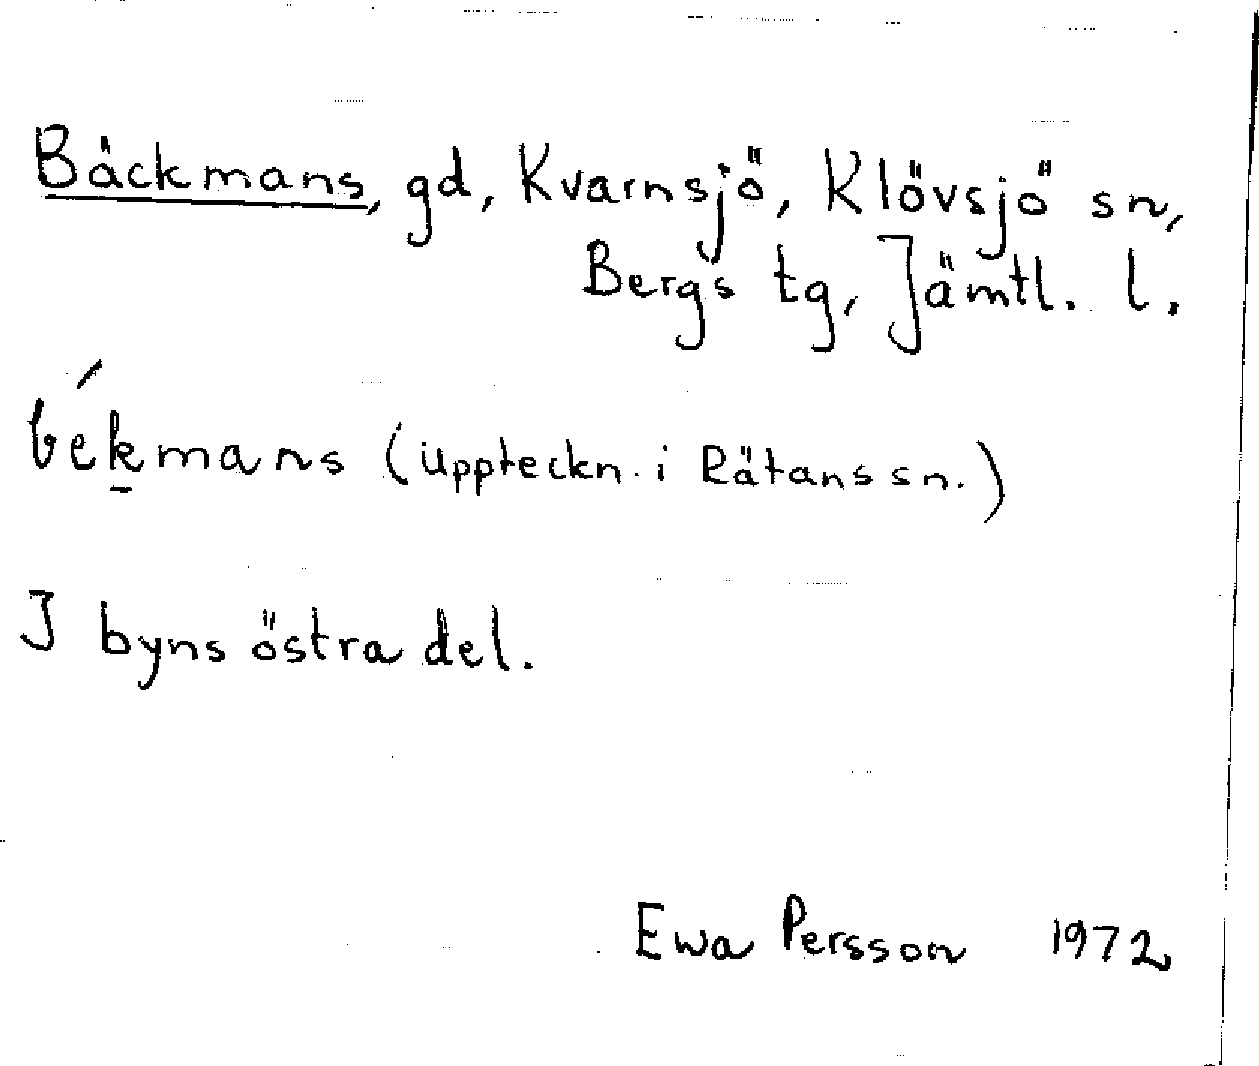 Bäckmans, gd, Kvarnsjö, Klövsjö sn,
Bergs tg, Jämtl. l.
béḵmans (uppteckn. i Rätans sn.)
I byns östra del.
Ewa Persson 1972